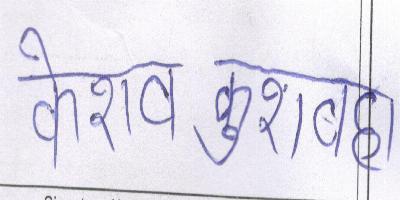 केशव कुशवहा